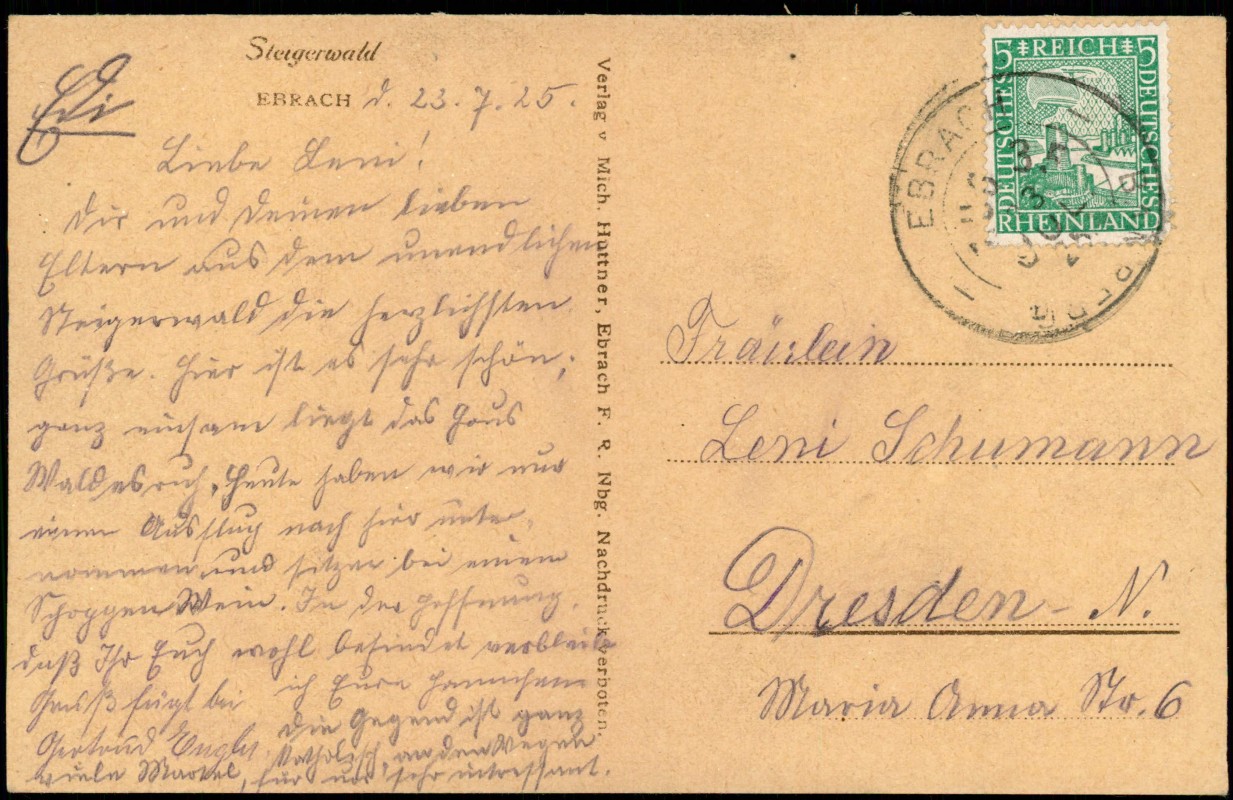 Steigerwald
EBRACH d. 23.7.25.
Edi
Liebe Leni!
Dir und Deinen lieben
Eltern aus dem unendlichen
Steigerwald die herzlichsten
Grüße. Hier ist es sehr schön,
ganz einsam liegt das Haus
Waldesruh, Heute haben wir nur
einen Ausflug nach hier unter-
nommen und sitzen bei einem
Schoppen Wein. In der Hoffnung,
daß Ihr Euch wohl befindet verbleibe
ich Eure Hannchen
Gruß fügt bei
Gertrud
Die Gegend ist ganz
katholisch, an den Wegen
viele Martel, für uns sehr intressant.
Verlag v Mich. Huttner, Ebrach F. R. Nbg. Nachdruck verboten.
5 REICH 5
DEUTSCHES
DEUTSCHES
RHEINLAND
EBRACH
Fräulein
Leni Schumann
Dresden-N.
Maria Anna Str. 6